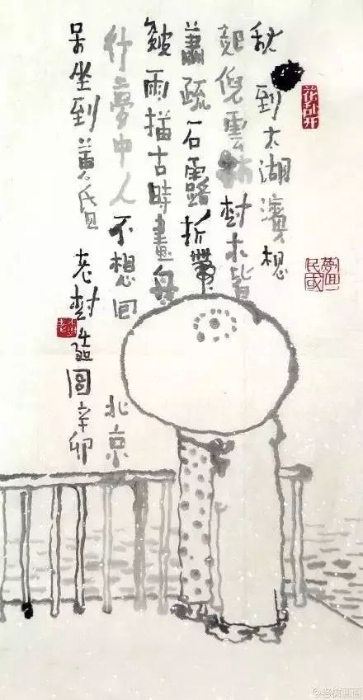 秋到太湖濱想
起倪雲林樹木皆
蕭疏石露折帶
皴雨描古時畫舟
行夢中人不想回
呆坐到黃昏 老樹圖辛卯
北京
花乱开
夢回民國